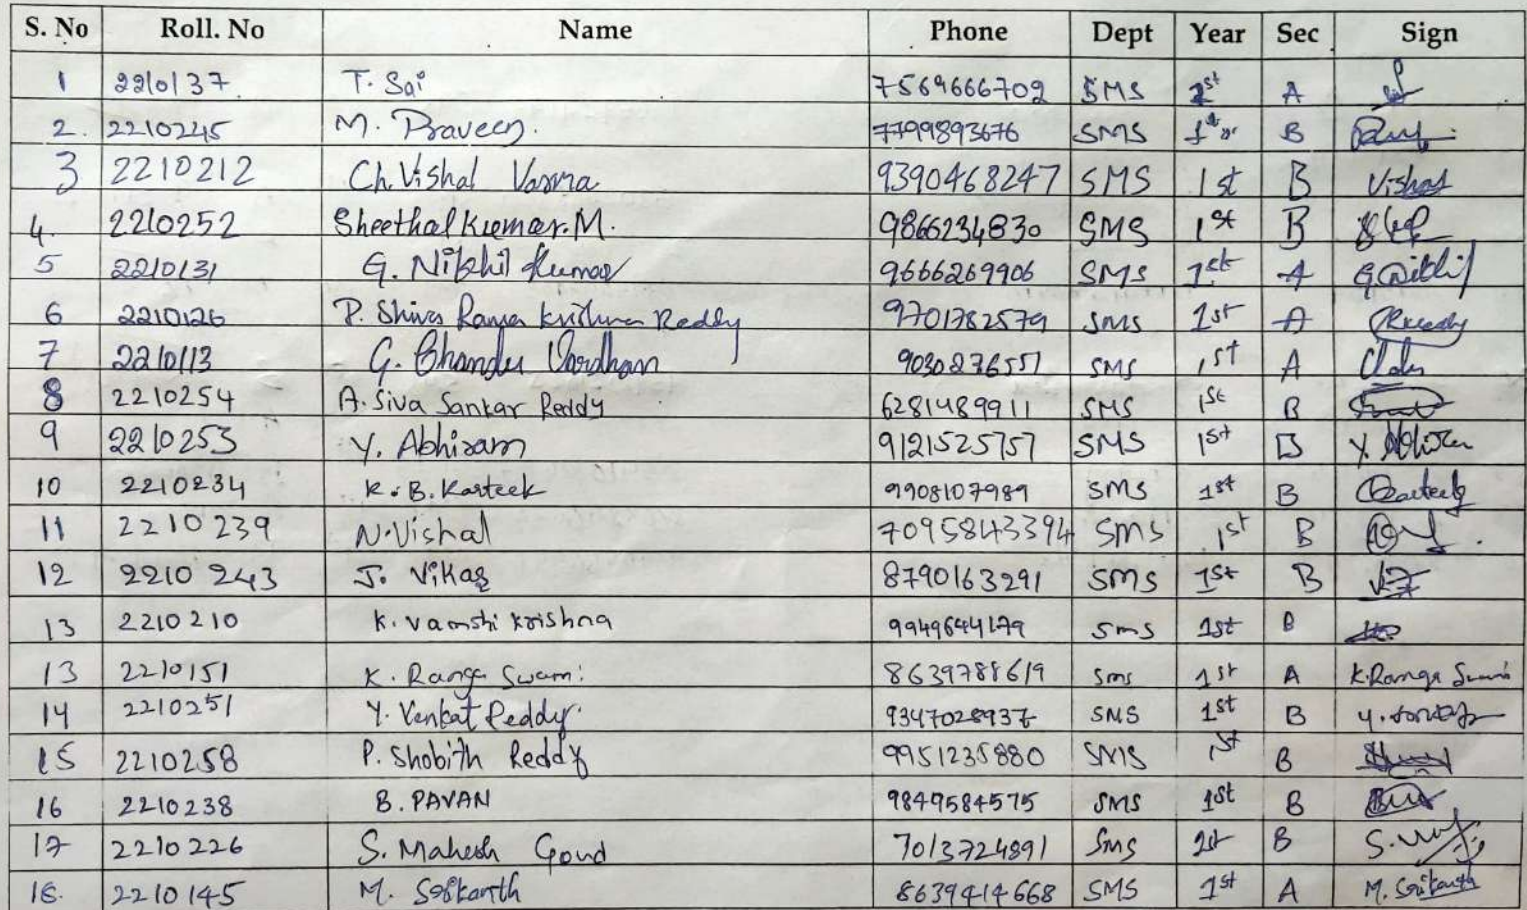 S. No Roll. No Name Phone Dept Year Sec Sign
1 2210137 T. Sai 7569666702 SMS 1st A
2. 2210245 M. Praveen. 7799893676 SMS 1st B
3 2210212 Ch. Vishal Varma 9390468247 SMS 1st B Vishal
4. 2210252 Sheethal Kumar. M. 9866234830 SMS 1st B
5 2210131 G. Nikhil Kumar 9666269906 SMS 1st A G. Nikhil
6 2210126 P. Shiva Rama Krishna Reddy 9701782579 SMS 1st A
7 2210113 G. Chandu Vardhan 9030276551 SMS 1st A
8 2210254 A. Siva Sankar Reddy 6281489911 SMS 1st B
9 2210253 Y. Abhiram 9121525757 SMS 1st B Y. Abhiram
10 2210234 K. B. Karteek 9908107989 SMS 1st B Karteek
11 2210239 N. Vishal 7095843394 SMS 1st B
12 2210243 J. Vikas 8790163291 SMS 1st B
13 2210210 K. Vamshi Krishna 9949644179 Sms 1st B
13 2210151 K. Ranga Swami 8639788619 Sms 1st A K. Ranga Swami
14 2210251 Y. Venkat Reddy. 9347028937 SMS 1st B
15 2210258 P. Shobith Reddy 9951235880 SMS 1st B
16 2210238 B. PAVAN 9849584575 SMS 1st B
17 2210226 S. Mahesh Goud 7013724891 Sms 1st B
18. 2210145 M. Srikanth 8639414668 SMS 1st A M. Srikanth